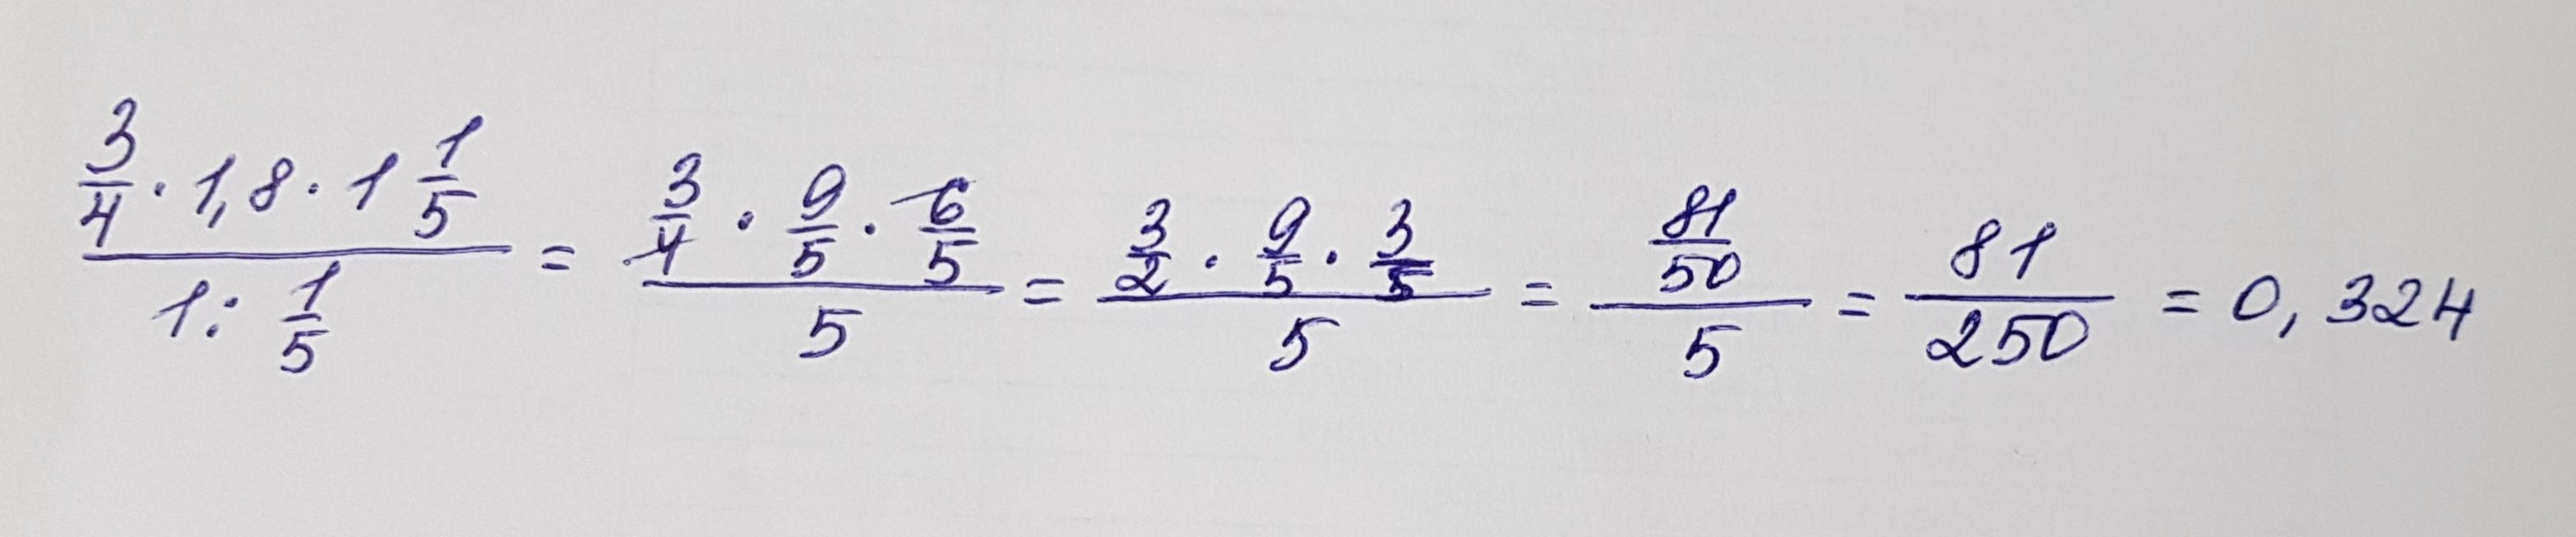 (3/4 · 1,8 · 1 1/5) / (1 : 1/5) = (3/4 · 9/5 · 6/5) / 5 = (3/2 · 9/5 · 3/5) / 5 = (81/50) / 5 = 81/250 = 0,324